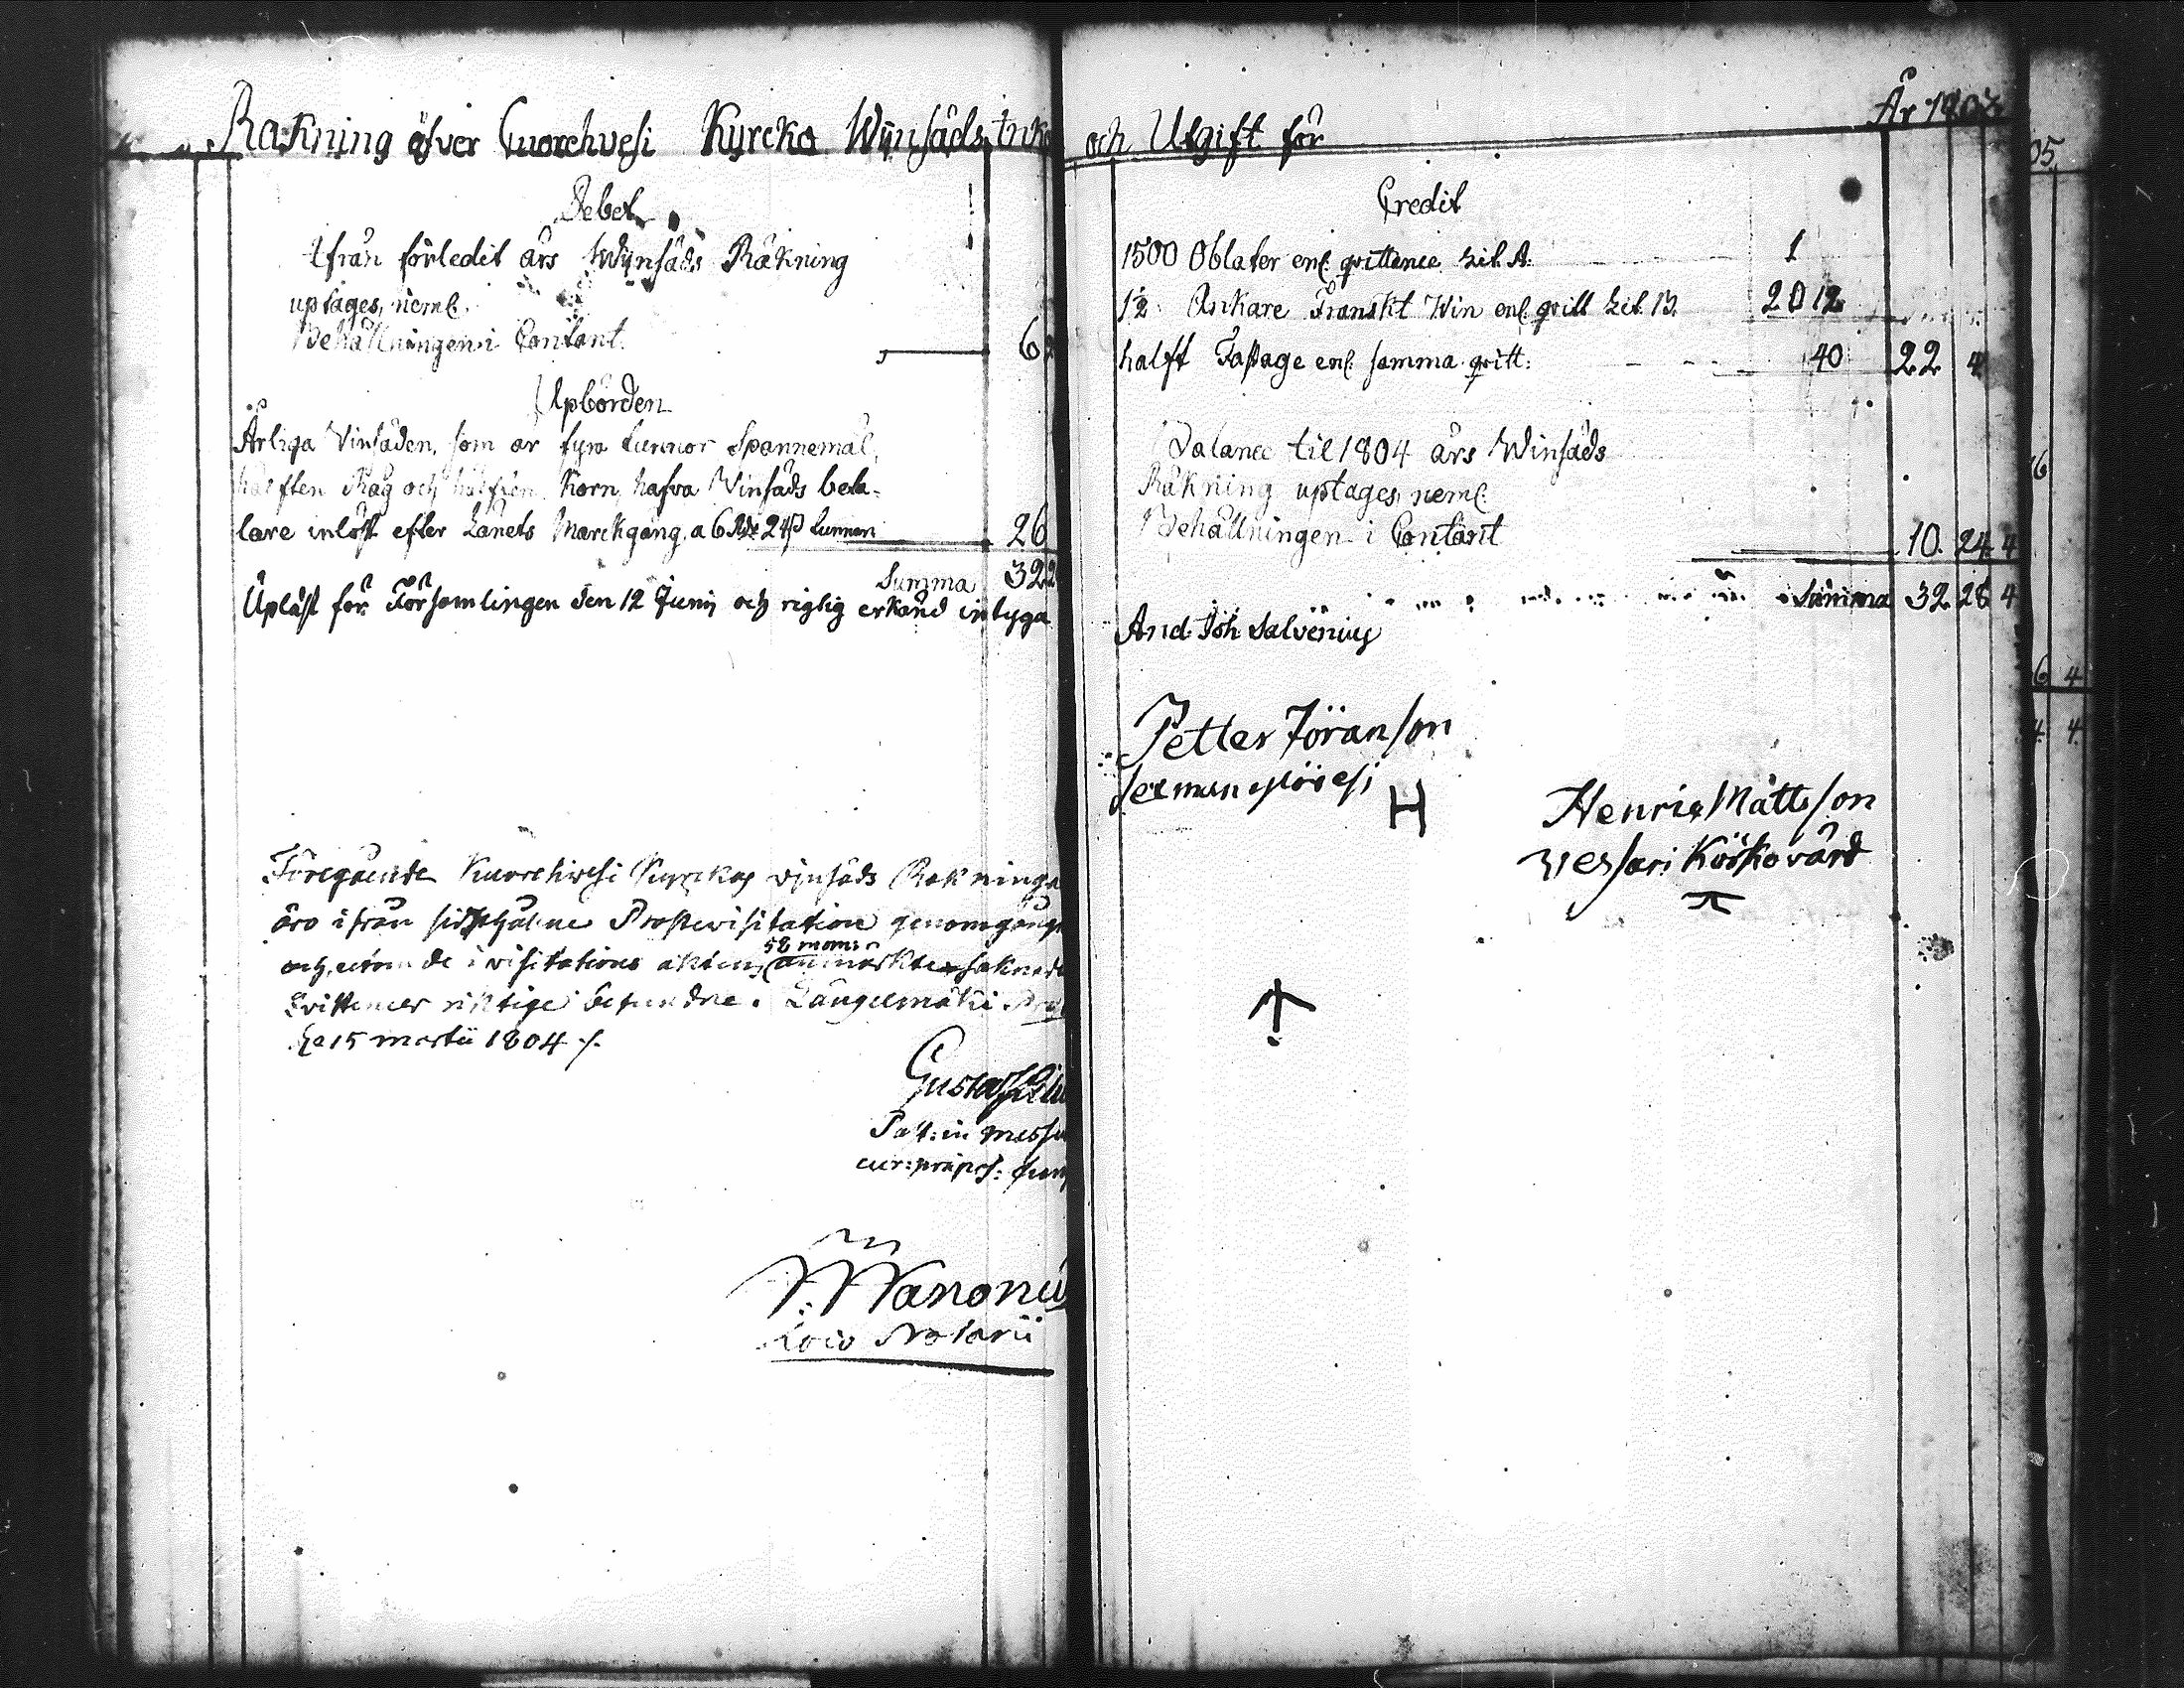 Räkning öfver Cuorehvesi Kyrcko Wijnsäds Ink
Debet
Ifrån förledit års Wijnsäds Räkning
uptages, neml.
Behållningen i Contant. 6
Upbörden
Årliga Vinsäden, som är fyra tunnor Spannemål,
hälften Råg och hälften Korn, hafva Vinsäds beta-
lare inlöst efter Länets Marckgång a 6 Rdr 24 ß tunnan 26
Summa 32 2
Upläst för Församlingen den 12 Junij och rigtig erkänd intyga
Föregående Kuorehwesi Kyrckas winsäds Räkninga
äro ifrån sidsthåldne Prostewisitation genomgångn
och, utom de i visitations akten 58 mom: anmärkte saknade
Qvittencer riktige befundne. Längelmäki
d 15 martii 1804 ./.
Gustaf
Past: in Messu
cur: præpos:
Wanoniu
Loco Notarii
och Utgift för År 1803
Credit
1500 Oblater enl: qvittence Lit. A. 1
1 1/2 Ankare Franskt Win enl: qvitt Lit. B. 20 12
halft Fastage enl: samma qvitt: 40 22 4
Balance til 1804 års Winsäds
Räkning uptages, neml:
Behållningen i Contant 10. 24 4
Summa 32 28 4
And: Joh Salvenius
Petter Jöranson
H
Henric Mattsson
↑
05
6
6 4
4 4